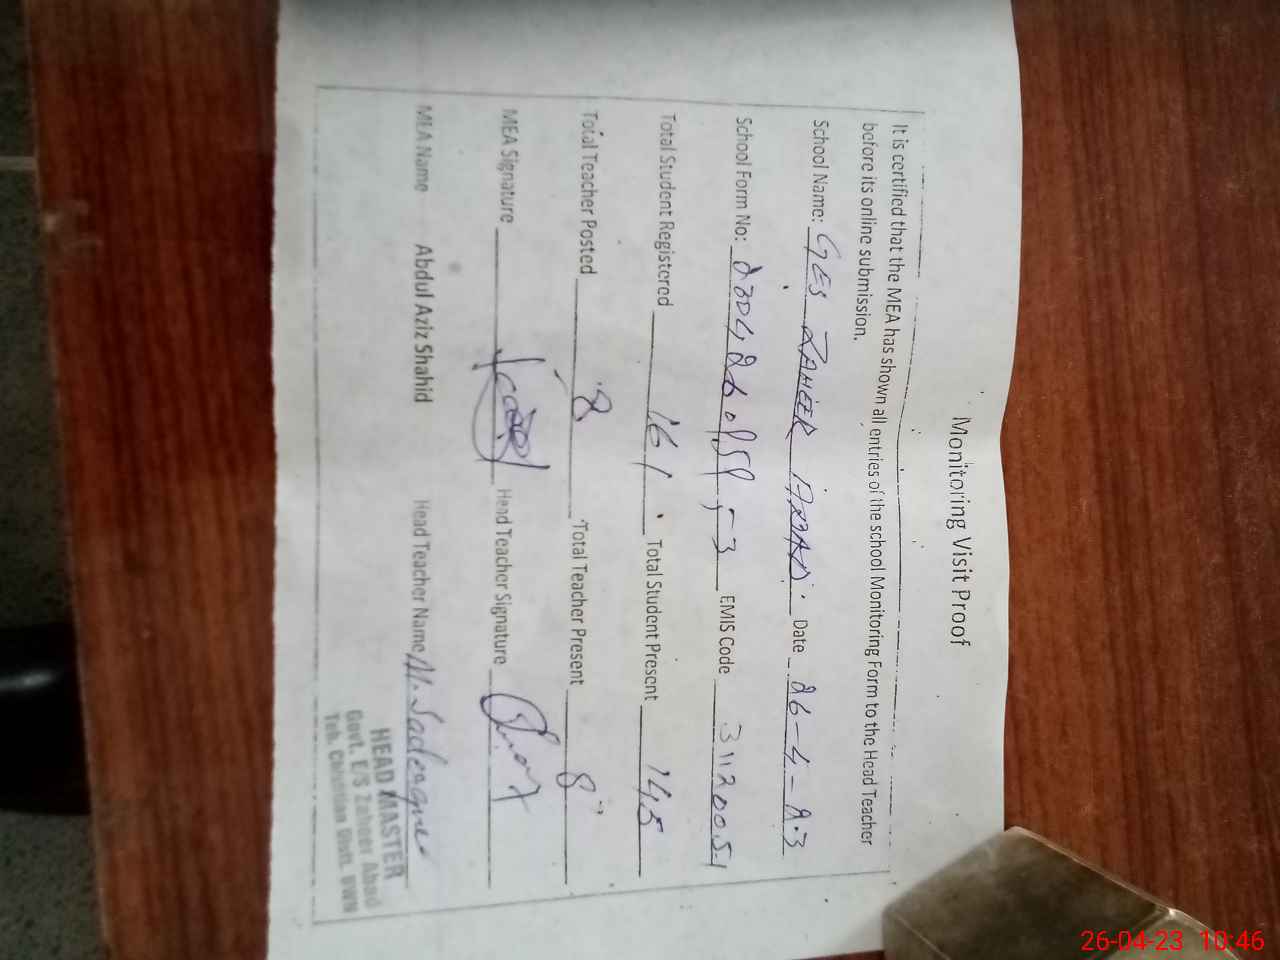 Monitoring Visit Proof
It is certified that the MEA has shown all entries of the school Monitoring Form to the Head Teacher
before its online submission.
School Name: GES ZAHEER ABAD. Date 26-4-23
School Form No: EMIS Code 31120051
Total Student Registered 161 Total Student Present 145
Total Teacher Posted 8 Total Teacher Present 8
MEA Signature Head Teacher Signature
MEA Name Abdul Aziz Shahid Head Teacher Name M. Sadeeque
HEAD MASTER
Govt. E/S Zaheer Abad
Teh. Chishtian Distt. BWN
26-04-23 10:46